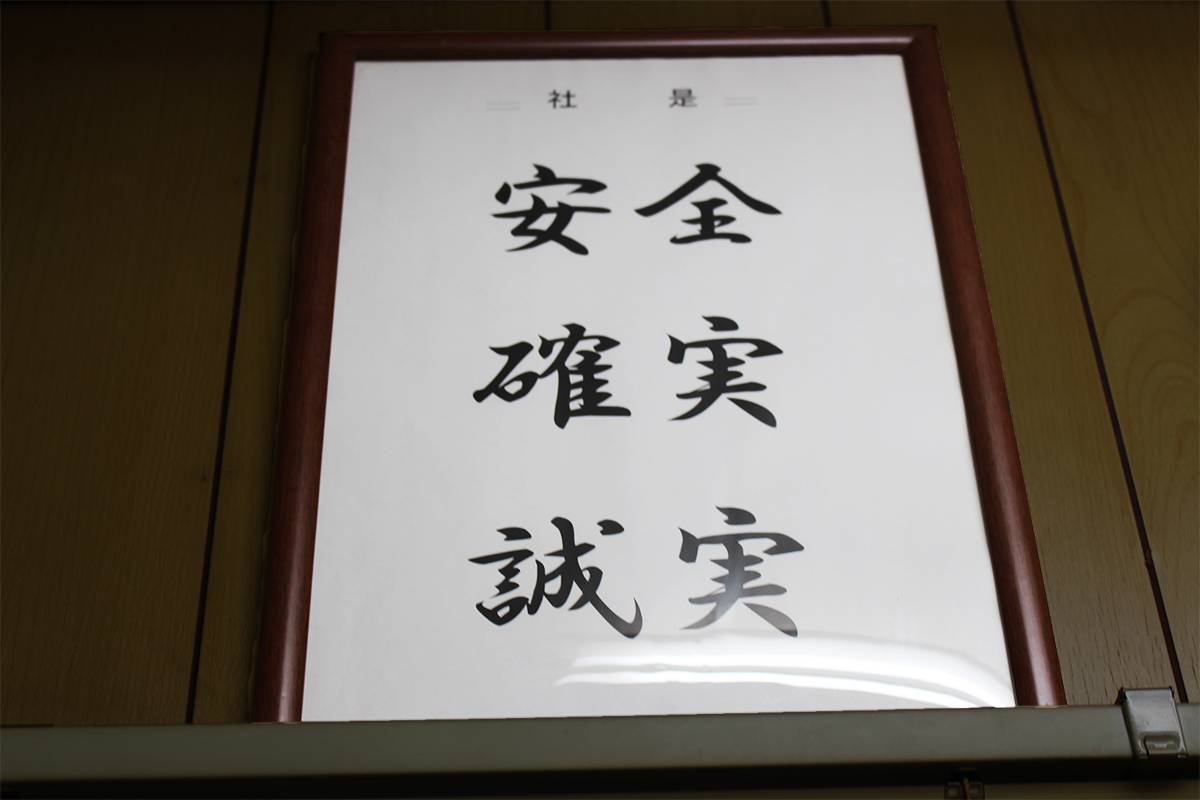 社是
安全
確実
誠実